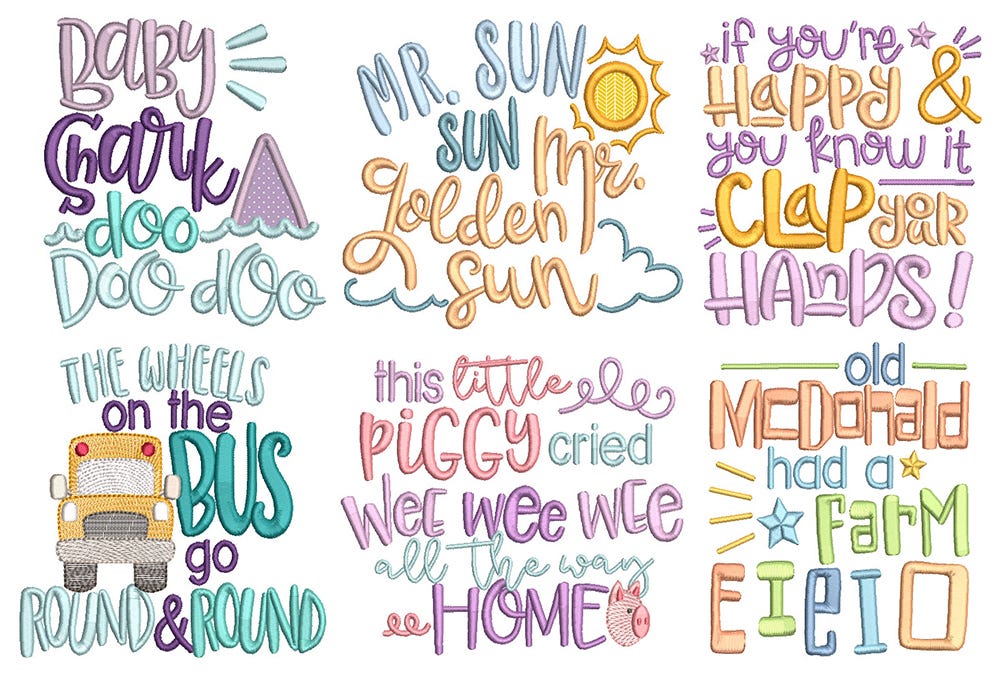 Baby
Shark
doo
Doo doo
MR. SUN
SUN Mr.
golden
sun
if you're
HAPPY &
you know it
CLAP yoUR
HAnDS!
THE WHEELS
on the
BUS
go
ROUND & ROUND
this little
PiGGY cried
Wee wee wee
all the way
HOME
old
McDonald
had a
FarM
EIeIO